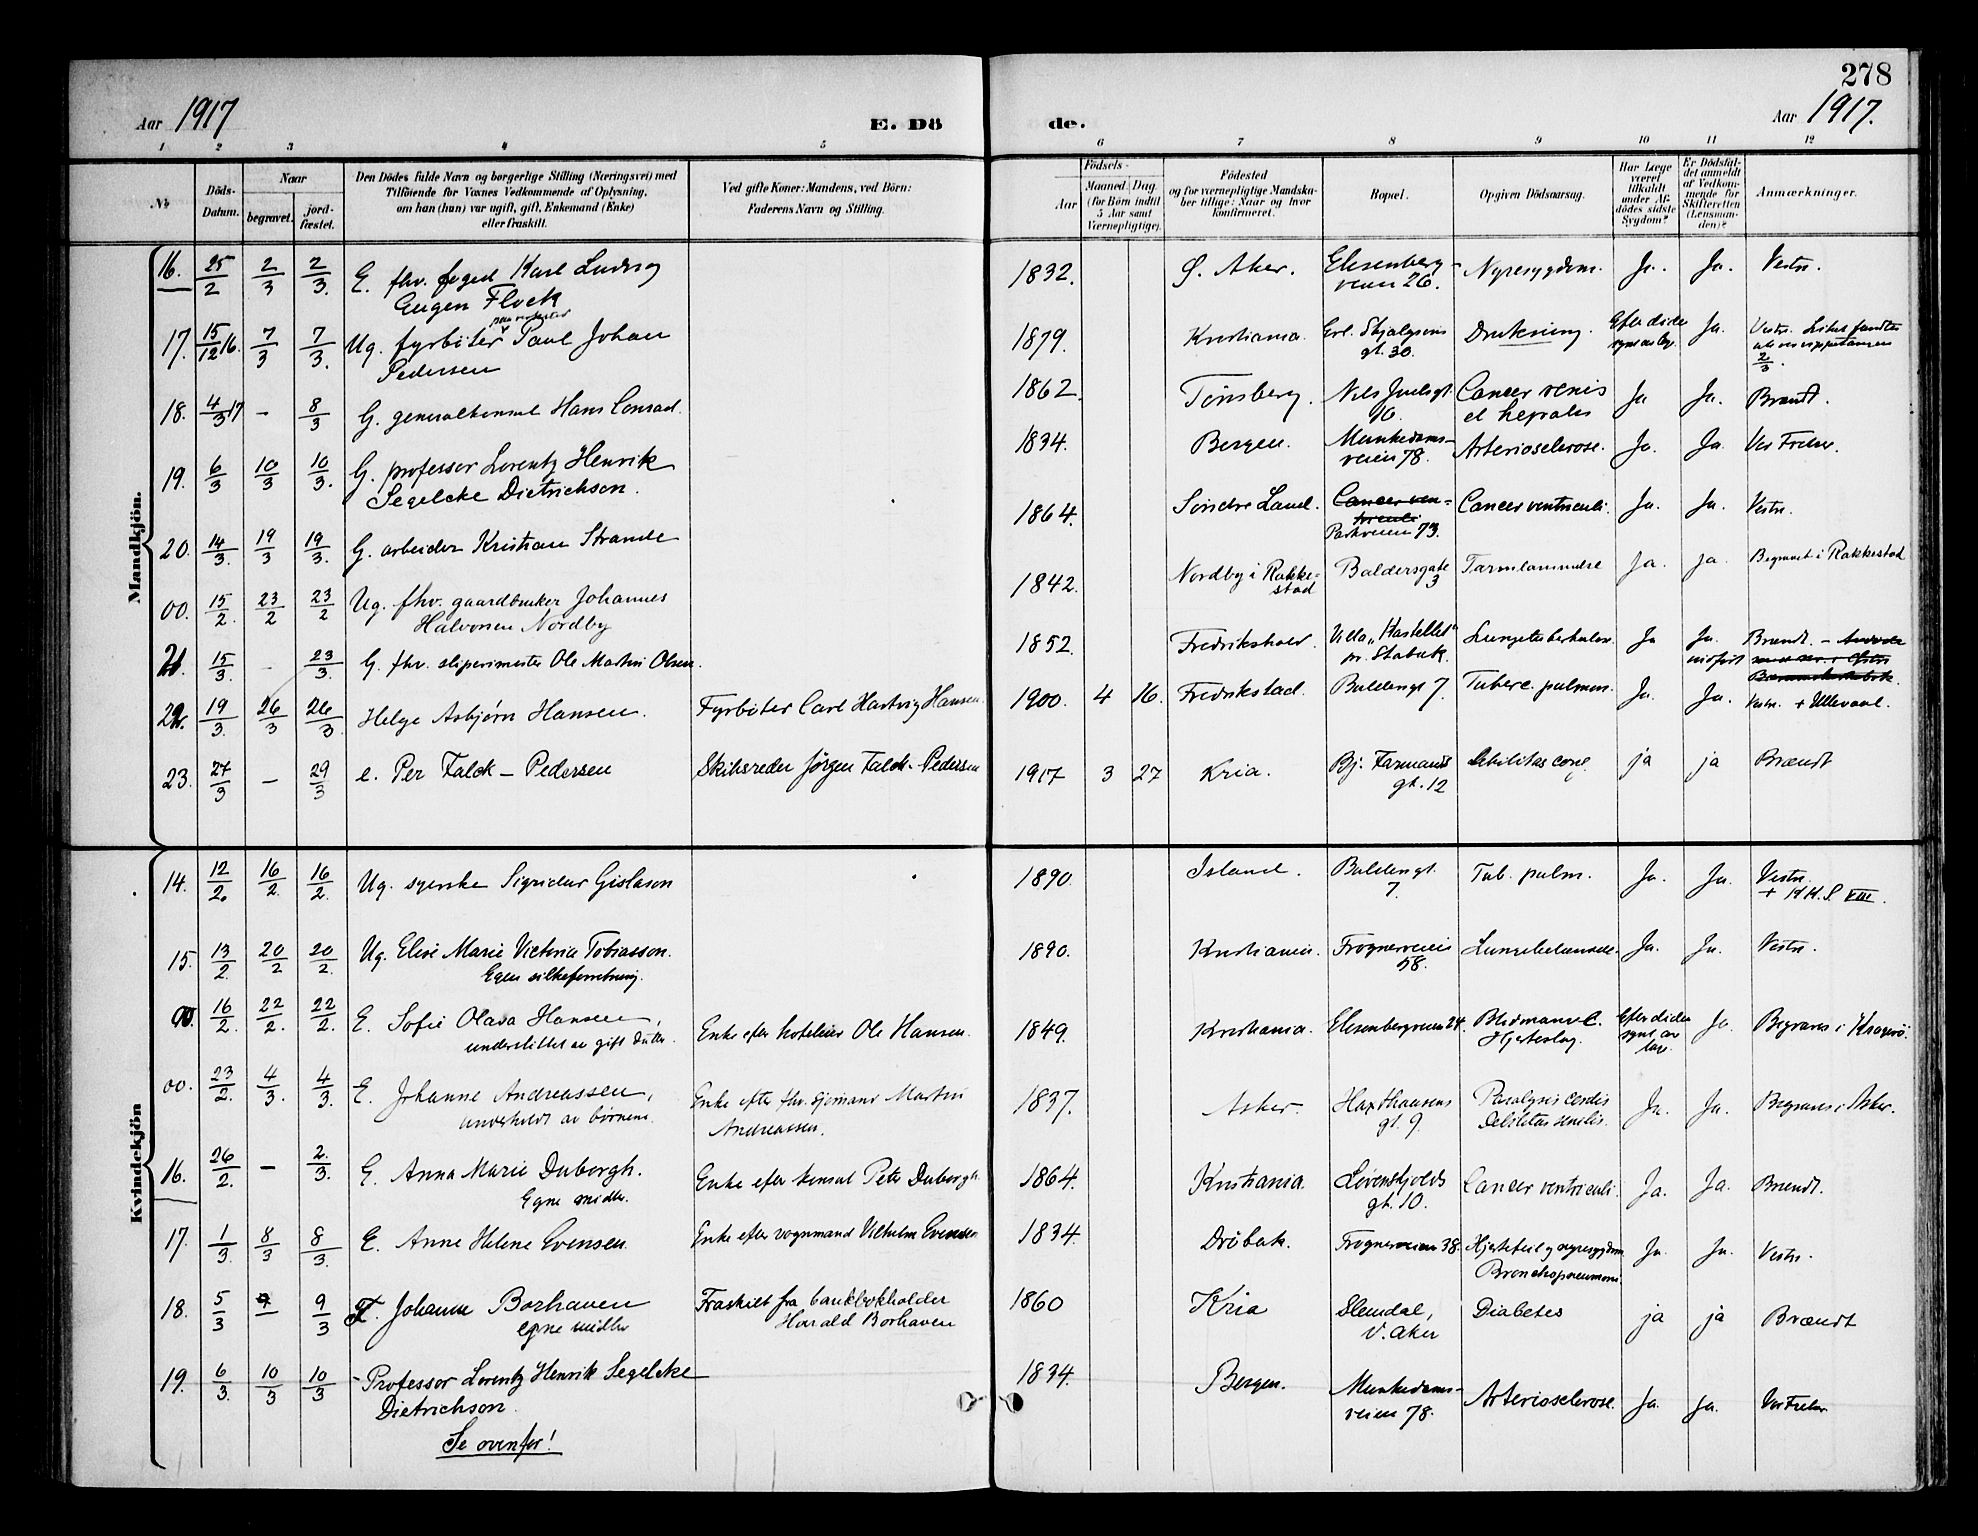 278
Aar 1917
E. Dö
de.
Aar 1917.
1 2 3 4 5 6 7 8 9 10 11 12
No
Döds-Datum.
Naar
begravet.
jord-fæstet.
Den Dödes fulde Navn og borgerlige Stilling (Næringsvei) med
Tilföiende for Voxnes Vedkommende af Oplysning,
om han (hun) var ugift, gift, Enkemand (Enke)
eller fraskilt.
Ved gifte Koner: Mandens, ved Börn:
Faderens Navn og Stilling.
Födsels-
Aar
Maaned. Dag.
(for Börn indtil
5 Aar samt
Værnepligtige).
Födested
og for værnepligtige Mandska-
ber tillige: Naar og hvor
konfirmeret.
Bopæl.
Opgiven Dödsaarsag.
Har Læge
været
tilkaldt
under Af-
dödes sidste
Sygdom?
Er Dödsfal-
det anmeldt
af Vedkom-
mende for
Skifteretten
(Lensman-
den)?
Anmærkninger.
Mandkjön.
16. 25/2 2/3 2/3. E. fhv. foged Karl Ludvig
Eugen Flock
1832. Ø. Aker. Elisenberg-
veien 26. Nyresygdom. Ja. Ja. Vestre.
17. 15/12 16. 7/3 7/3. Ug. fyrbøter Paul Johan
Pedersen
1879. Kristiania. Erl. Skjalgsøns
gt. 30. Drukning. Efter døden
Ja. Vestre. Liket fundet
2/3.
18. 4/3 17 – 8/3 G. generalkonsul Hans Conrad.
1862. Tønsberg. Nils Juelsgt
Cancer renis
et hepatis Ja Ja. Brændt.
19. 6/3 10/3 10/3. G. professor Lorentz Henrik
Segelcke Dietrichson.
1834. Bergen. Munkedams-
veien 78. Arteriosclerose. Ja. Ja. Vor Frelser
20. 14/3. 19/3 19/3. G. arbeider Kristian Strande
1864. Søndre Land. Cancer ven-
triculi
Parkveien 73. Cancer ventriculi. Ja. Ja. Vestre.
00. 15/2. 23/2 23/2 Ug. fhv. gaardbruker Johannes
Halvorsen Nordby
1842. Nordby i Rakke-
stad Baldersgate
3 Ja. ja. Begravet i Rakkestad
21. 15/3. – 23/3. G. fhv. sliperimester Ole Martin Olsen.
1852. Fredrikshald. Villa "Kastellet"
pr. Stabæk. Lungetuberkulose. Ja Ja. Brændt.
22. 19/3. 26/3 26/3 Helge Asbjørn Hansen. Fyrbøter Carl Hartvig Hansen.
1900. 4 16. Fredrikstad. Baldersgt 7. Tuberc. pulmon. Ja. Ja. Vestre. + Ullevaal.
23. 27/3 – 29/3 e. Per Falck-Pedersen Skibsreder Jörgen Falck-Pedersen
1917 3 27 Kria. Bj. Farmands
gt. 12 Debilitas cong. ja ja Brændt
Kvindekjön
14. 12/2. 16/2. 16/2. Ug. syerske Sigridur Gislason
1890. Island. Baldersgt.
7. Tub. pulm. Ja. Ja. Vestre.
+ K.K.S. VIII.
15. 13/2. 20/2 20/2. Ug. Elise Marie Victoria Tobiasson.
Egen silkeforretning.
1890. Kristiania. Frognerveien
58. Lungebetændelse. Ja. Ja. Vestre.
00. 16/2. 22/2. 22/2. E. Sofie Olava Hansen,
understøttet av gift datter. Enke efter hotelier Ole Hansen.
1849. Kristiania. Elisenbergveien 24. Blodmangel.
Hjerteslag. Efter døden
synt av
læge. Ja. Begraves i Kragerø.
00. 23/2. 4/3. 4/3. E. Johanne Andreassen,
underholdt av børnene. Enke efter fhv. sjømand Martin
Andreassen.
1837. Asker. Haxthausens
gt. 9. Paralysis cordis
Debilitas senilis. Ja. Ja. Begraves i Asker.
16. 26/2. – 2/3. E. Anna Marie Duborgh.
Egne midler. Enke efter konsul Peter Duborgh.
1864. Kristiania. Løvenskjolds
gt. 10. Cancer ventriculi. Ja. Ja. Brændt.
17. 1/3. 8/3 8/3. E. Anne Helene Evensen. Enke efter vognmand Vilhelm Evensen
1834. Drøbak. Frognerveien 38. Hjertefeil og nyresygdom
Bronchopneumoni. Ja. Ja. Vestre.
18. 5/3 – 9/3 F. Johanne Borhaven
egne midler Fraskilt fra bankbokholder
Harald Borhaven
1860 Kria Slemdal,
V. Aker Diabetes ja ja Brændt
19. 6/3. 10/3 10/3 Professor Lorentz Henrik Segelcke
Dietrichson.
Se ovenfor!
1834. Bergen. Munkedams-
veien 78. Arteriosclerose. Ja. Ja. Vor Frelser